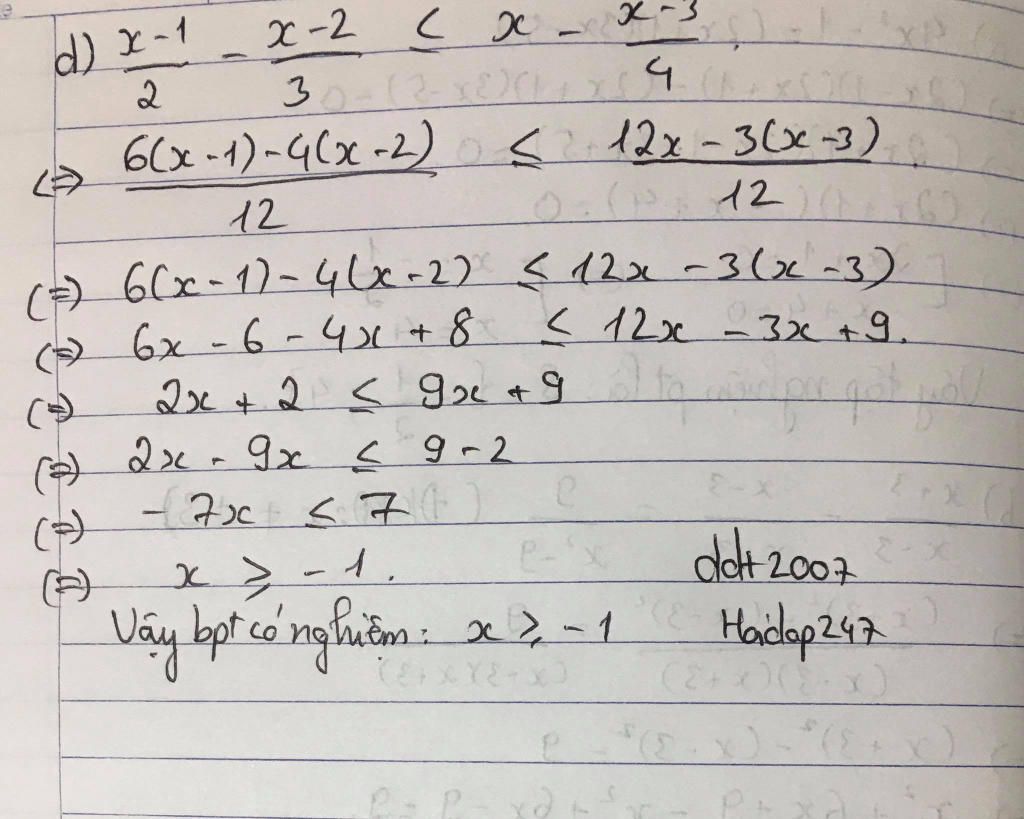 d) (x-1)/2 - (x-2)/3 ≤ x - (x-3)/4.
(=) (6(x-1)-4(x-2))/12 ≤ (12x-3(x-3))/12
(=) 6(x-1)-4(x-2) ≤ 12x-3(x-3)
(=) 6x-6-4x+8 ≤ 12x-3x+9.
(=) 2x+2 ≤ 9x+9
(=) 2x-9x ≤ 9-2
(=) -7x ≤ 7
(=) x ≥ -1. ddt2007
Vậy bpt có nghiệm: x ≥ -1 Hoidap247